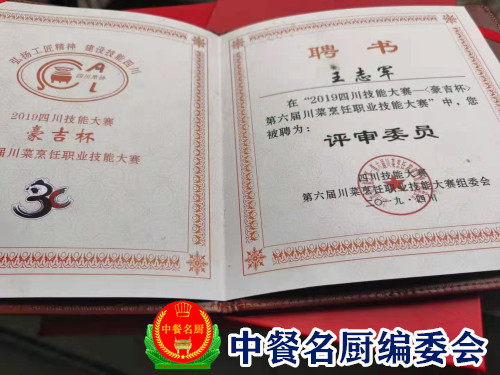 弘扬工匠精神 建设技能四川
2019四川技能大赛
豪吉杯
届川菜烹饪职业技能大赛
聘书
王志军
在“2019四川技能大赛—〈豪吉杯〉
第六届川菜烹饪职业技能大赛”中，您
被聘为：
评审委员
四川技能大赛
第六届川菜烹饪职业技能大赛组委会
二〇一九·四川
中餐名厨
中餐名厨编委会